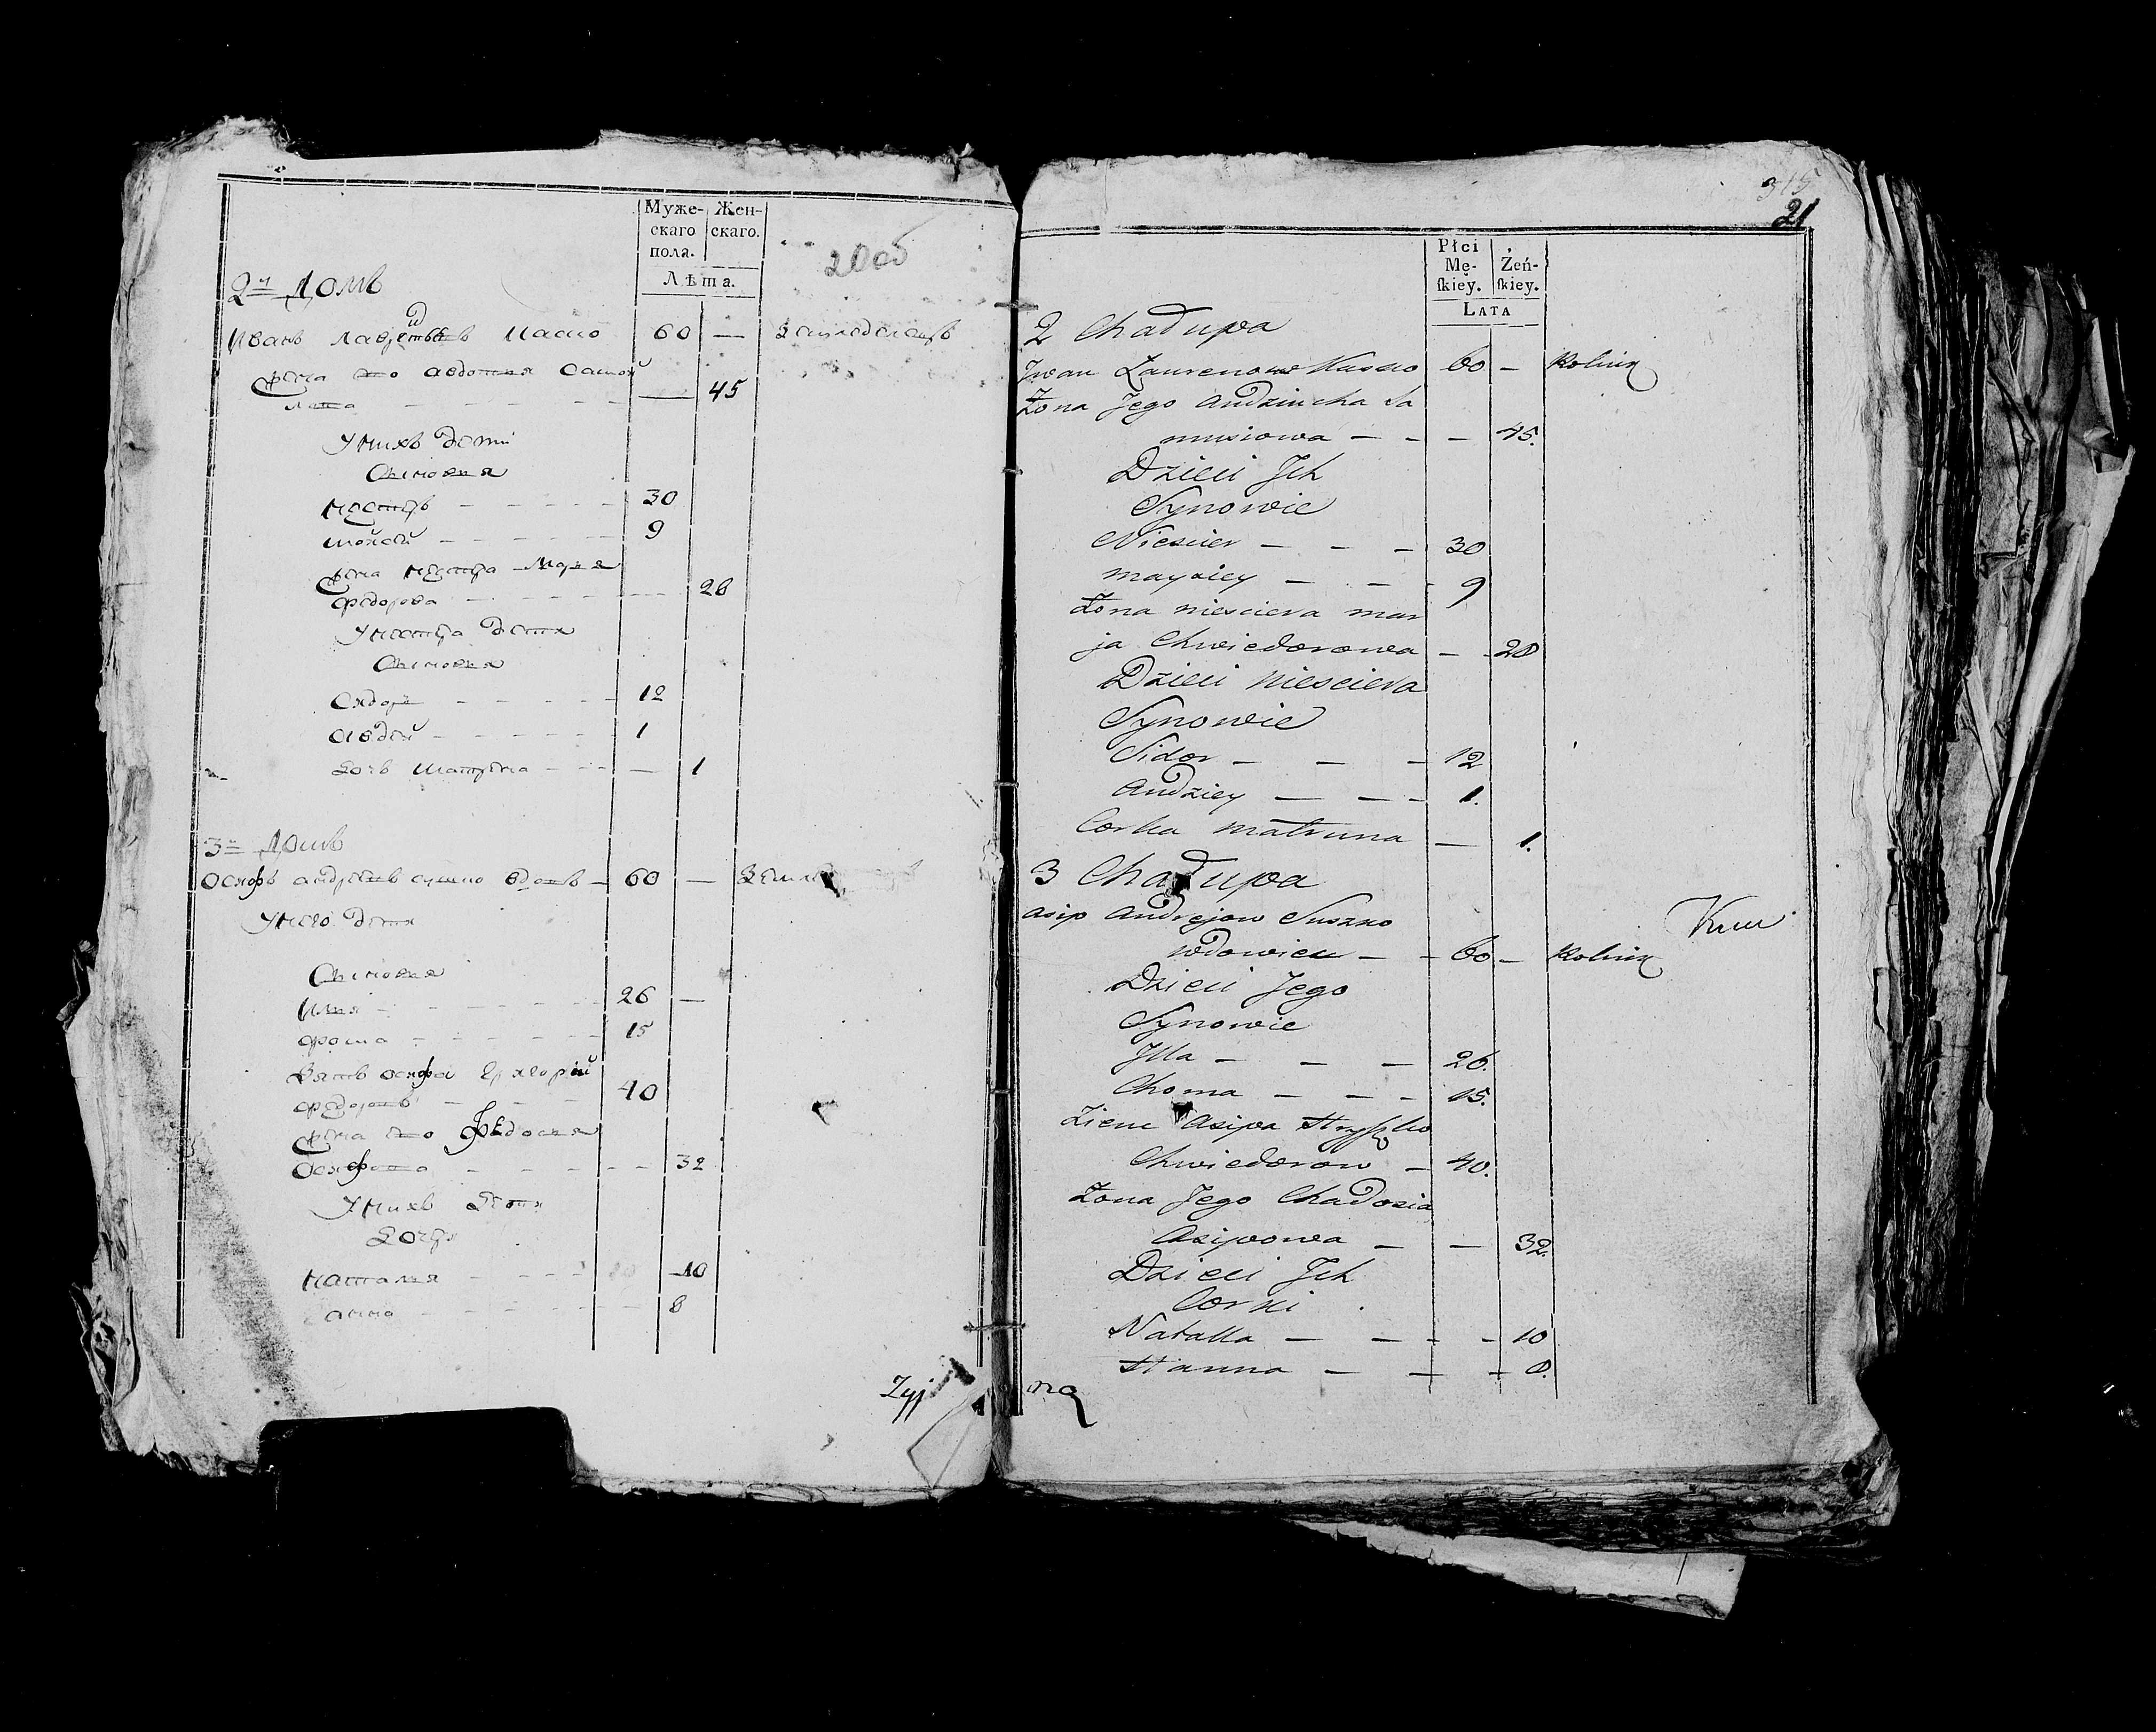 Муже-
скаго
пола.
Жен-
скаго.
Лѣта.
2й Домъ
Иванъ 60 —
жена его Авдотья
— 45
У нихъ дѣти
Сыновья
Нестеръ - - - - - 30
Мойсей - - - - - 9
жена Нестера Марья
Федорова - - - - - 28
У Нестера дѣти
Сыновья
Сидоръ - - - - - 12
Авдей - - - - - 1
дочь Матрена - - - — 1
3й Домъ
Осифъ Андреевъ Сушко вдовъ — 60 —
У него дѣти
Сыновья
Илья - - - - - 26 —
Фома - - - - - 15
Зять Осифа Григорій
Федоровъ - - - 40
жена его Федосья
Осифова - - - - - 32
У нихъ дѣти
Дочери
Наталья - - - - 10
Анна - - - - - 8
315
21
Płci
Mę-
skiey.
Żeń-
skiey.
Lata
2 Chałupa
Jwan Ławrenow 60 — Rolnik
Żona Jego Audziucha Sa
musiowa — - — 45.
Dzieci Jch
Synowie
Niescier — - — 30
Mayziey — - — 9
Żona Niesciera Mar
ja Chwiedorowa — - 28
Dzieci Niesciera
Synowie
Sidor — — — 12
Audziey — — - 1.
Corka Matruna — 1.
3 Chałupa
Asip Andrejow Suszko
wdowiec — - 60 — Rolnik
Dzieci Jego
Synowie
Jlla — — — 26.
Choma — — - 15.
Zienc Asipa Hryszko
Chwiedorow — 40.
Żona Jego Chadosia
Asipowa — — 32.
Dzieci Jch
Corki
Natalla — — - - 10
Hanna — — + 8.